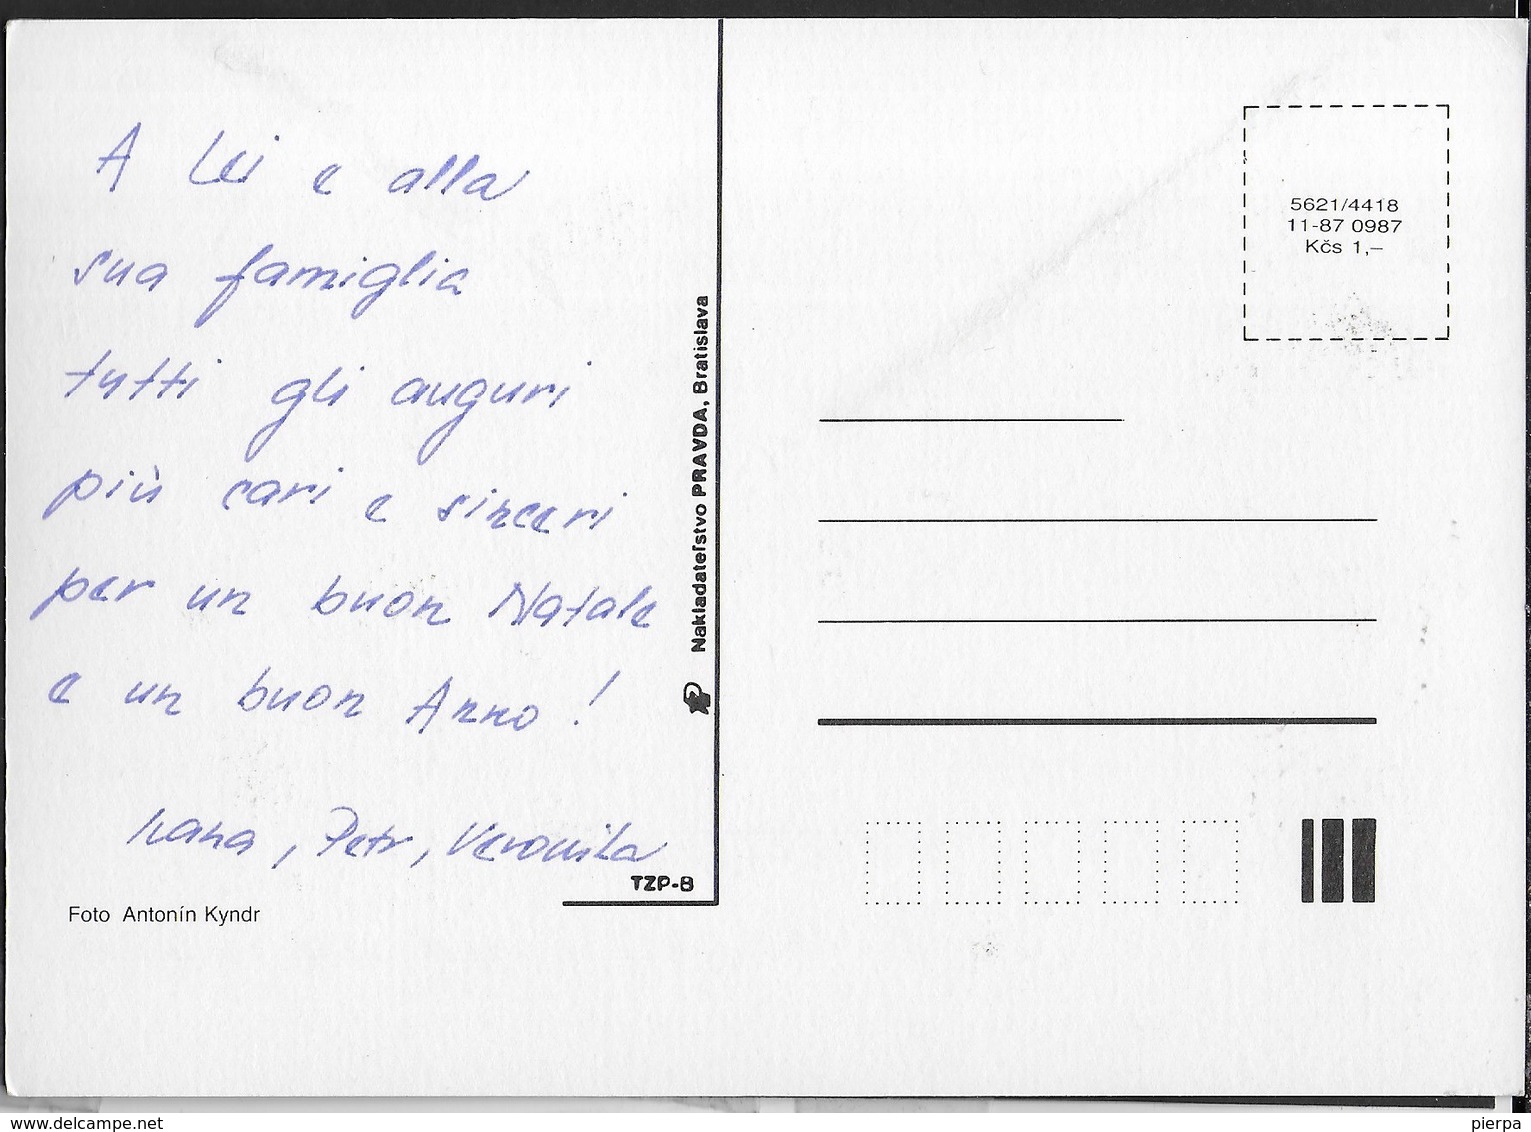 A Lei e alla
sua famiglia
tutti gli auguri
più cari e sinceri
per un buon Natale
e un buon Anno !
Ivana, Petr, Veronika
TZP-8
Foto Antonín Kyndr
Nakladateľstvo PRAVDA, Bratislava
5621/4418
11-87 0987
Kčs 1,–
www.delcampe.net
pierpa